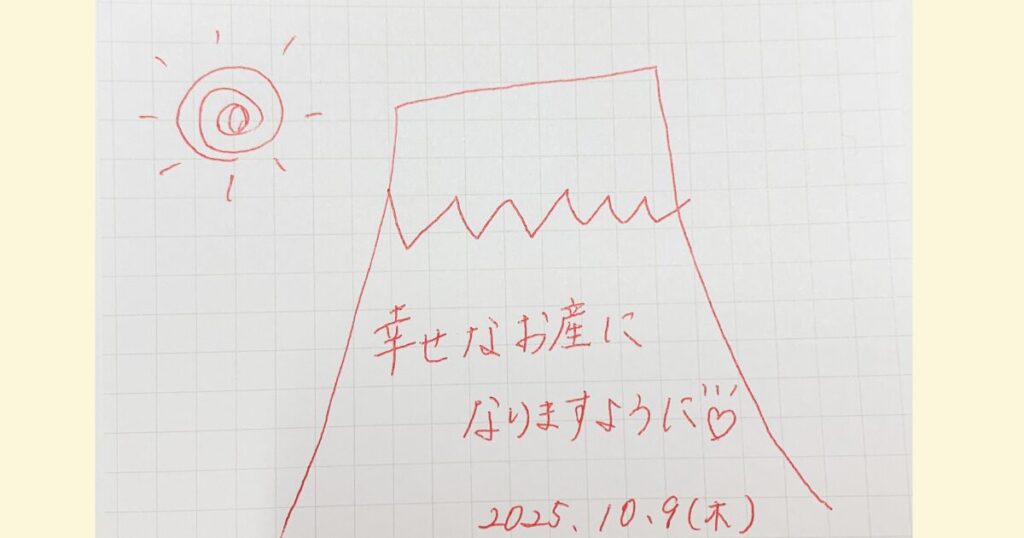 幸せなお産に
なりますように♡
2025.10.9(木)